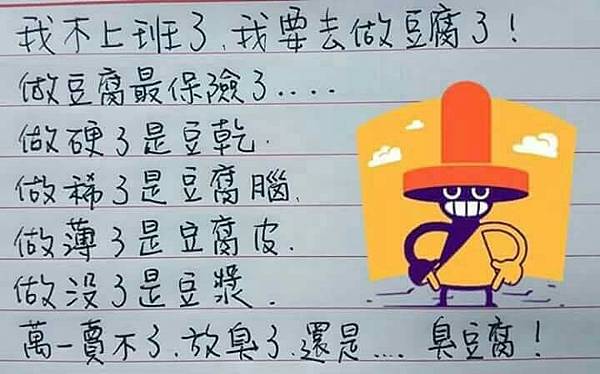 我不上班了,我要去做豆腐了!
做豆腐最保險了....
做硬了是豆乾.
做稀了是豆腐腦.
做薄了是豆腐皮.
做没了是豆漿.
萬一賣不了,放臭了,還是....臭豆腐!